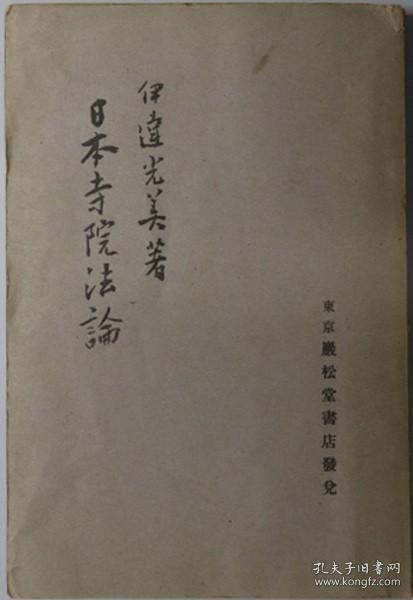 伊達光美著
日本寺院法論
東京巖松堂書店發兌
孔夫子旧书网
https://book.kongfz.com